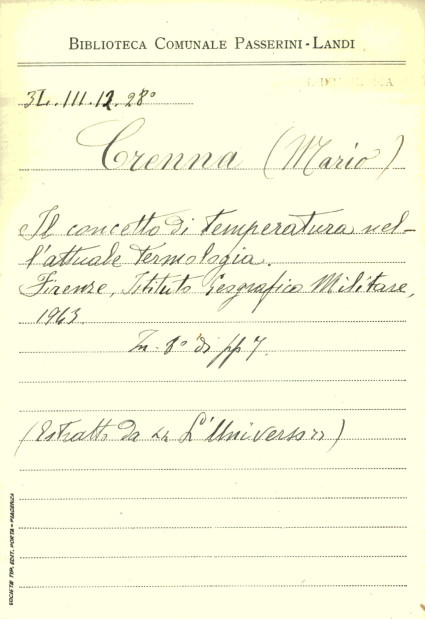 BIBLIOTECA COMUNALE PASSERINI-LANDI
3L.III.12.28°
Crenna (Mario)
Il concetto di temperatura nel-
l'attuale termologia.
Firenze, Istituto Geografico Militare,
1963.
In-8° di pp 7.
(Estratto da "L'Universo")
SOCIETÀ TIP. EDIT. PORTA - PIACENZA